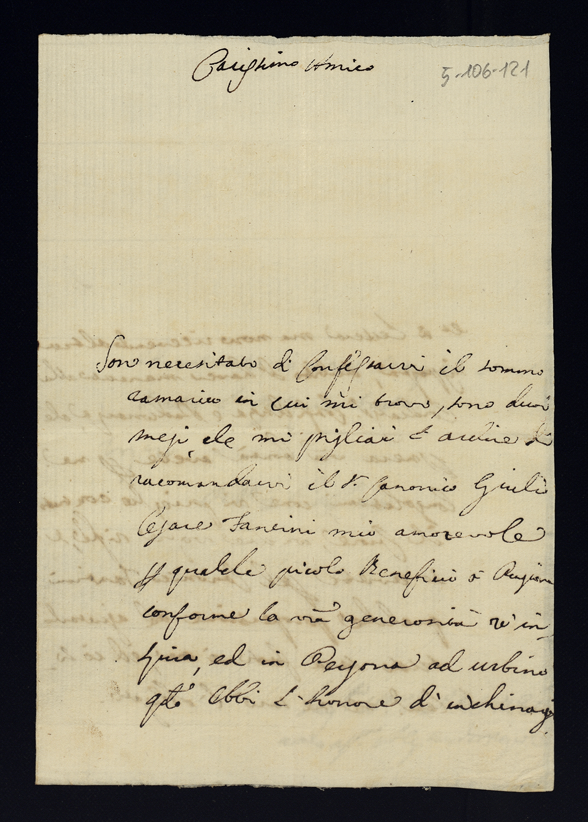 Carissimo Amico
5-106-121
Sono necesitato di Confessarvi il sommo
ramarico in cui mi trovo, sono duoi
mesi che mi pigliai l'ardire di
racomandarvi il Sr Canonico Giulio
Cesare Fancini mio amorevole
qualche picolo Beneficio ò
conforme la vrã generosità v'in
spira, ed in Persona ad urbino
qdo Ebbi l'honore d'inchinar